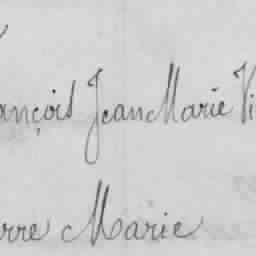 ançois Jean Marie Vi
erre Marie